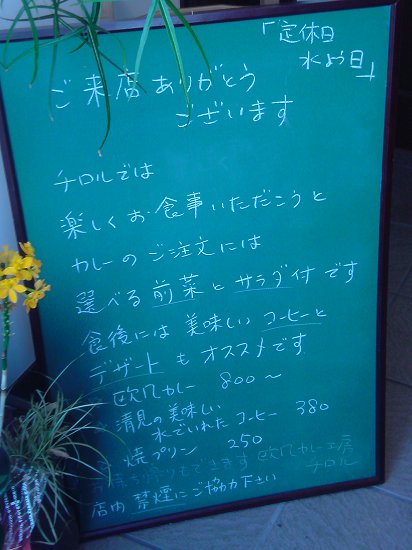 「定休日
水よう日」
ご来店ありがとう
ございます
チロルでは
楽しくお食事いただこうと
カレーのご注文には
選べる前菜とサラダ付です
食後には美味しいコーヒーと
デザートもオススメです
欧風カレー 800〜
清見の美味しい
水でいれたコーヒー 380
焼プリン 250
お持ち帰りもできます 欧風カレー工房
チロル
店内禁煙にご協力下さい